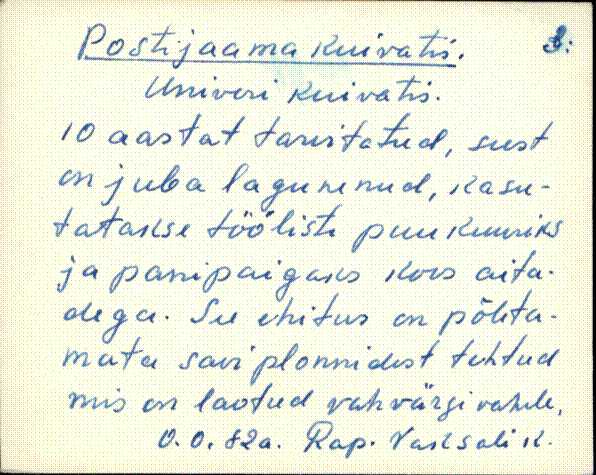 Postijaama kuivatis. 3:
Univeri kuivatis.
10 aastat tarvitatud, sest
on juba lagunenud, kasu-
tatakse tööliste puukuuriks
ja panipaigaks koos aita-
dega. See ehitus on põleta-
mata saviplonnidest tehtud
mis on laotud vahvärgi vahele,
O.O. 82a. Rap. Vaksali k.